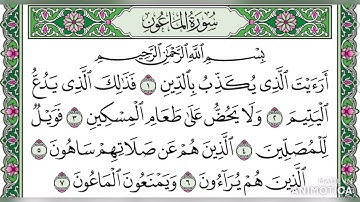 سُورَةُ المَاعُونَ
بِسْمِ اللَّهِ الرَّحْمَٰنِ الرَّحِيمِ
أَرَءَيْتَ الَّذِي يُكَذِّبُ بِالدِّينِ ١ فَذَٰلِكَ الَّذِي يَدُعُّ
الْيَتِيمَ ٢ وَلَا يَحُضُّ عَلَىٰ طَعَامِ الْمِسْكِينِ ٣ فَوَيْلٌ
لِّلْمُصَلِّينَ ٤ الَّذِينَ هُمْ عَن صَلَاتِهِمْ سَاهُونَ ٥
الَّذِينَ هُمْ يُرَآءُونَ ٦ وَيَمْنَعُونَ الْمَاعُونَ ٧